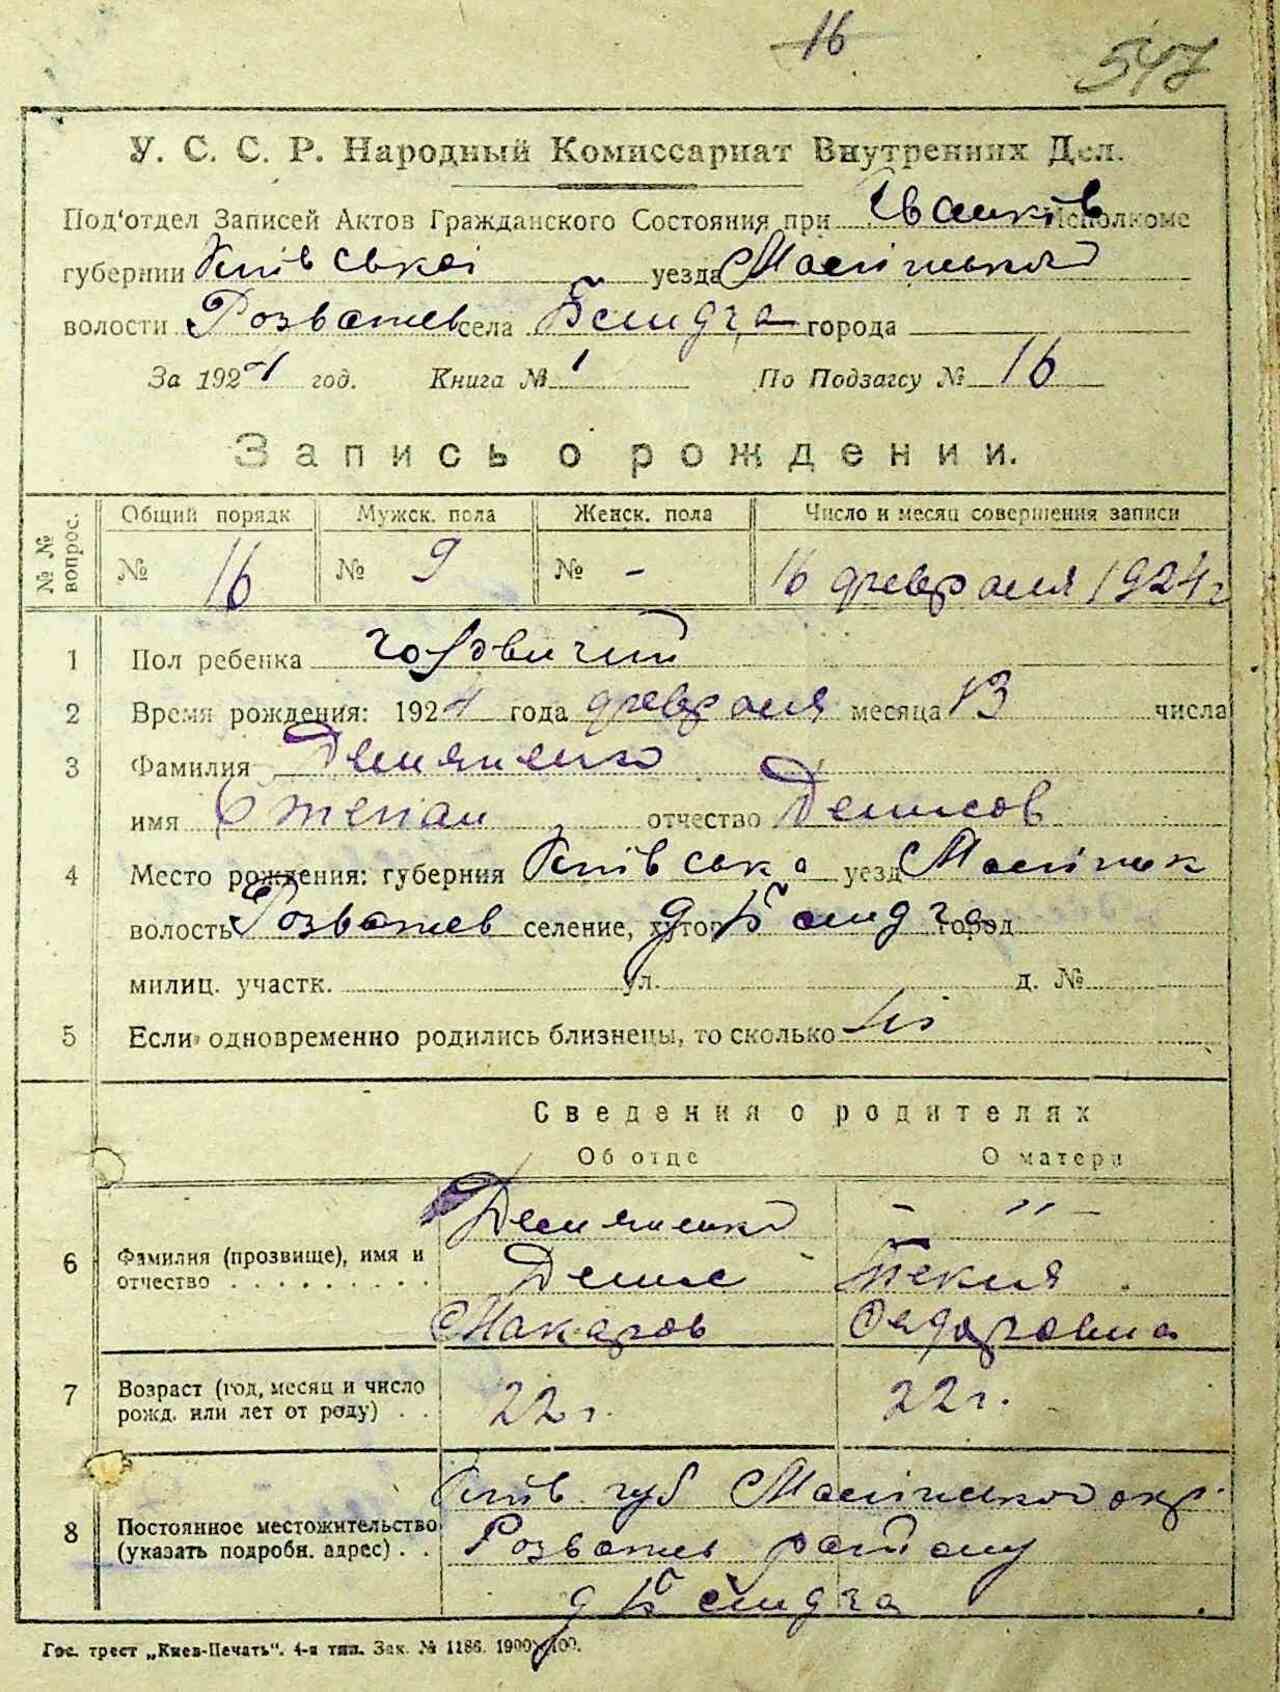 16
547
У. С. С. Р. Народный Комиссариат Внутренних Дел.
Под'отдел Записей Актов Гражданского Состояния при Іванків Исполкоме
губернии Київськоі уезда
волости Розважев села города
За 1924 год. Книга № 1 По Подзагсу № 16
Запись о рождении.
№ № вопрос.
Общий порядк Мужск. пола Женск. пола Число и месяц совершения записи
№ 16 № 9 № - 16 февраля 1924 г
1 Пол ребенка чоловичий
2 Время рождения: 1924 года февраля месяца 13 числа
3 Фамилия Демяненко
имя Степан отчество Денисов
4 Место рождения: губерния Київська уезд
волость Розважев селение, хутор город
милиц. участк. ул. д. №
5 Если одновременно родились близнецы, то сколько
Сведения о родителях
Об отце О матери
Демяненко - " -
6 Фамилия (прозвище), имя и отчество Денис Текля
Макаров Федоровна
7 Возраст (год, месяц и число рожд. или лет от роду) 22 г. 22 г.
Київ губ окр.
8 Постоянное местожительство (указать подробн. адрес) Розважев району
Гос. трест „Киев-Печать". 4-я тип. Зак. № 1186. 1900×100.